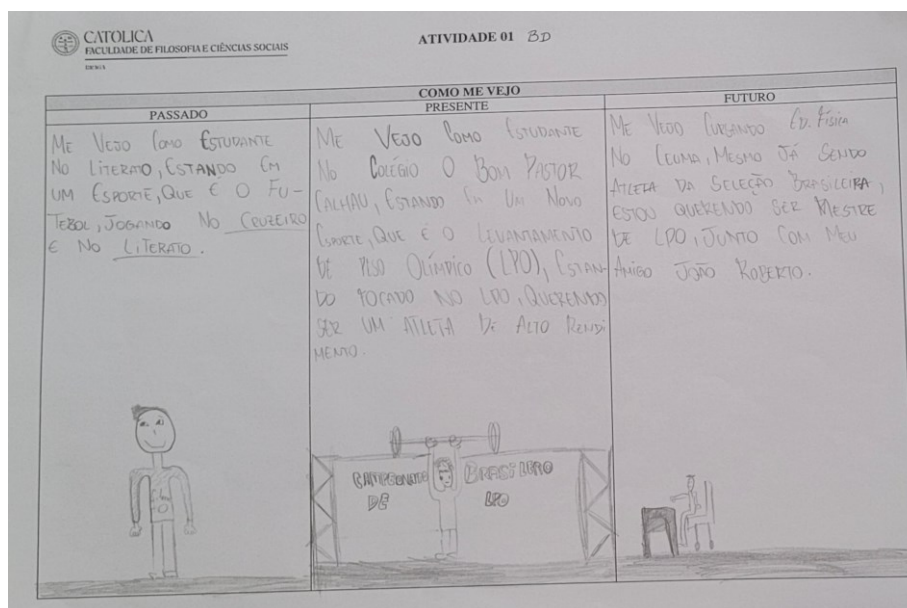 CATOLICA
FACULDADE DE FILOSOFIA E CIÊNCIAS SOCIAIS
ATIVIDADE 01 BD
COMO ME VEJO
PASSADO
ME VEJO COMO ESTUDANTE
NO LITERATO, ESTANDO EM
UM ESPORTE, QUE É O FU-
TEBOL, JOGANDO NO CRUZEIRO
E NO LITERATO.
PRESENTE
ME VEJO COMO ESTUDANTE
NO COLÉGIO O BOM PASTOR
CALHAU, ESTANDO EM UM NOVO
ESPORTE, QUE É O LEVANTAMENTO
DE PESO OLÍMPICO (LPO), ESTAN-
DO FOCADO NO LPO, QUERENDO
SER UM ATLETA DE ALTO RENDI
MENTO.
CAMPEONATO BRASILEIRO
DE LPO
FUTURO
ME VEJO CURSANDO ED. FÍSICA
NO CEUMA, MESMO JÁ SENDO
ATLETA DA SELEÇÃO BRASILEIRA,
ESTOU QUERENDO SER MESTRE
DE LPO, JUNTO COM MEU
AMIGO JOÃO ROBERTO.